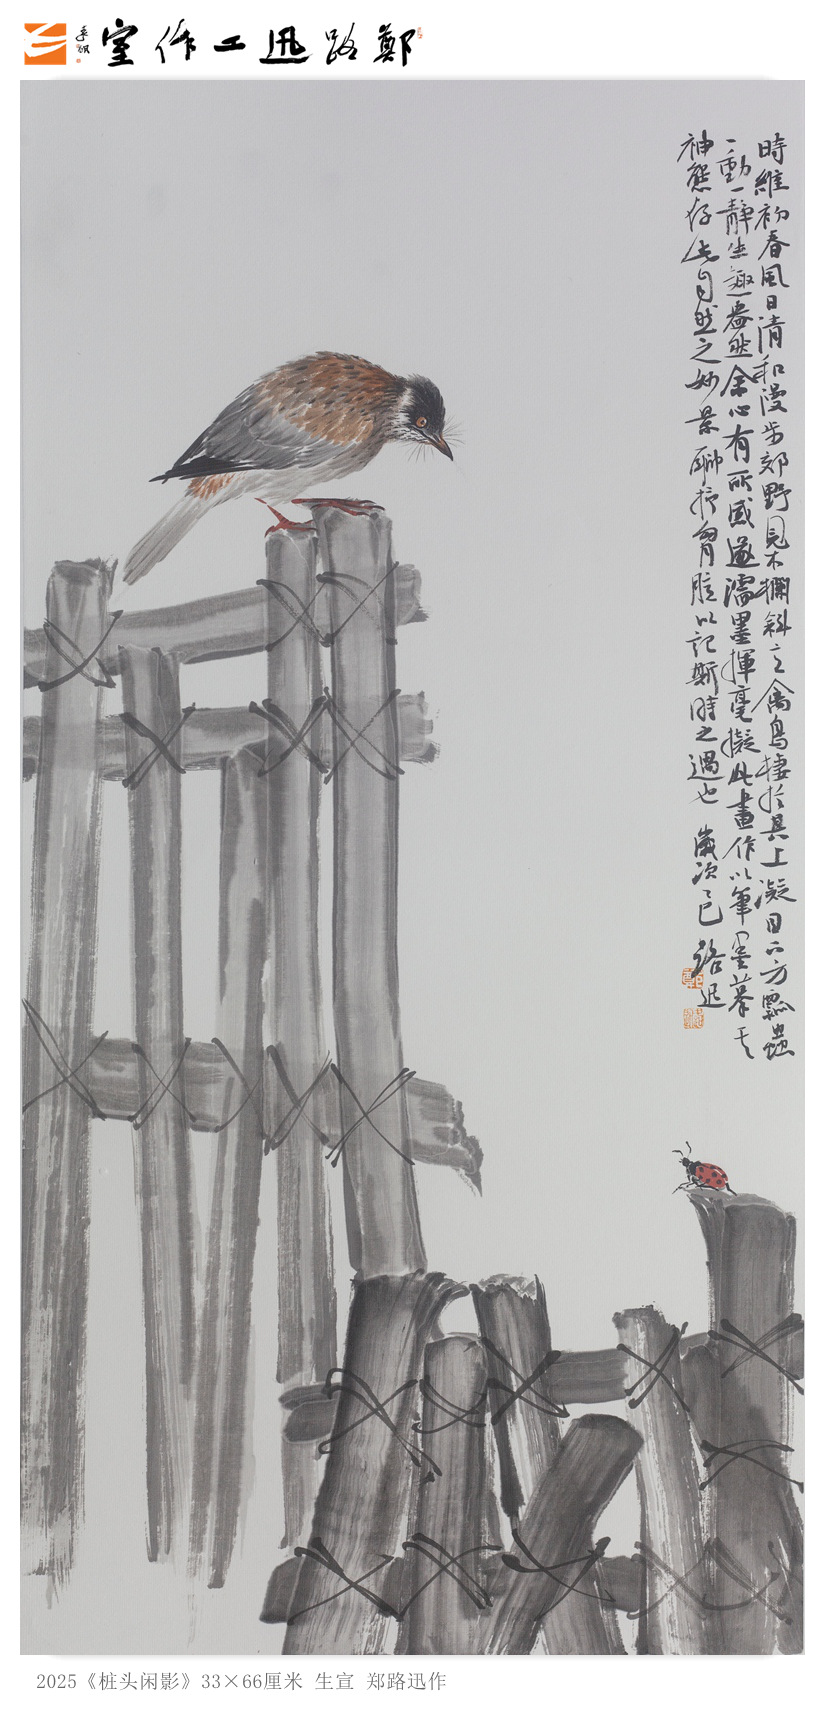 鄭路迅工作室
時維初春風日清和漫步郊野見木欄斜立禽鳥棲於其上凝目下方瓢蟲
一動一靜生趣盎然余心有所感遂濡墨揮毫擬此畫作以筆墨摹其
神態存此自然之妙景聊抒胸臆以記斯時之遇也 歲次乙巳 路迅
2025《桩头闲影》33×66厘米 生宣 郑路迅作